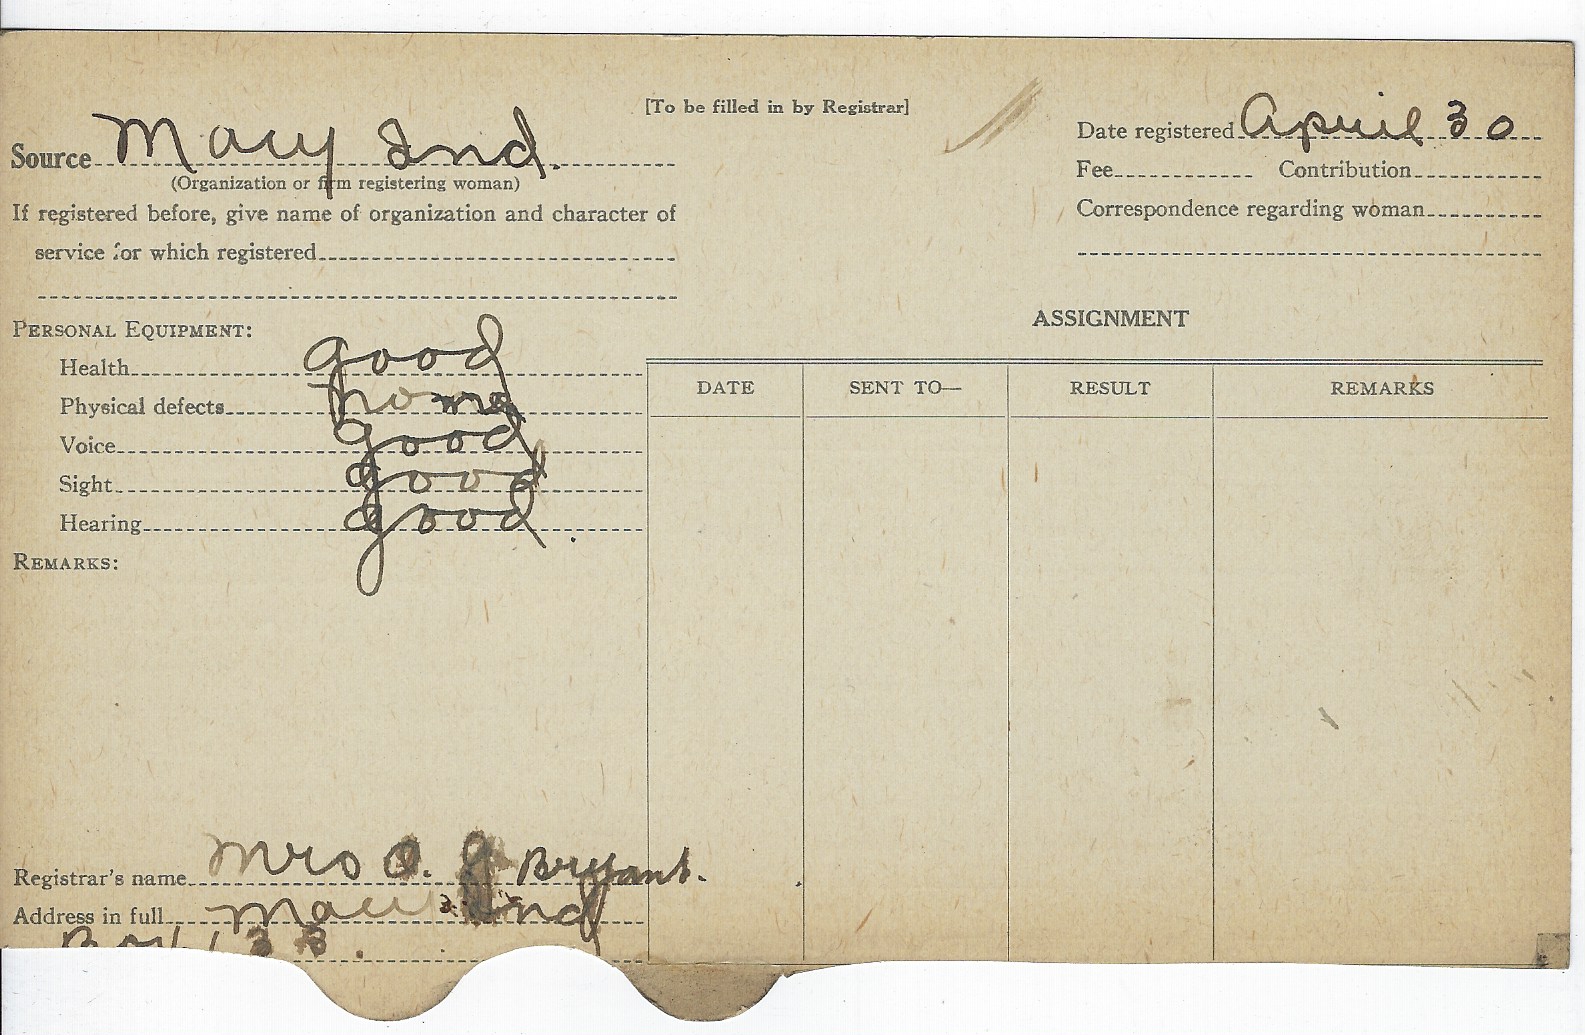 [To be filled in by Registrar]
Source Macy Ind.
(Organization or firm registering woman)
If registered before, give name of organization and character of
service for which registered
Date registered April 30
Fee Contribution
Correspondence regarding woman
PERSONAL EQUIPMENT:
Health good
Physical defects
Voice good
Sight good
Hearing good.
REMARKS:
ASSIGNMENT
DATE SENT TO— RESULT REMARKS
Registrar's name Mrs O. J Bryant.
Address in full Macy Ind
Box 133.